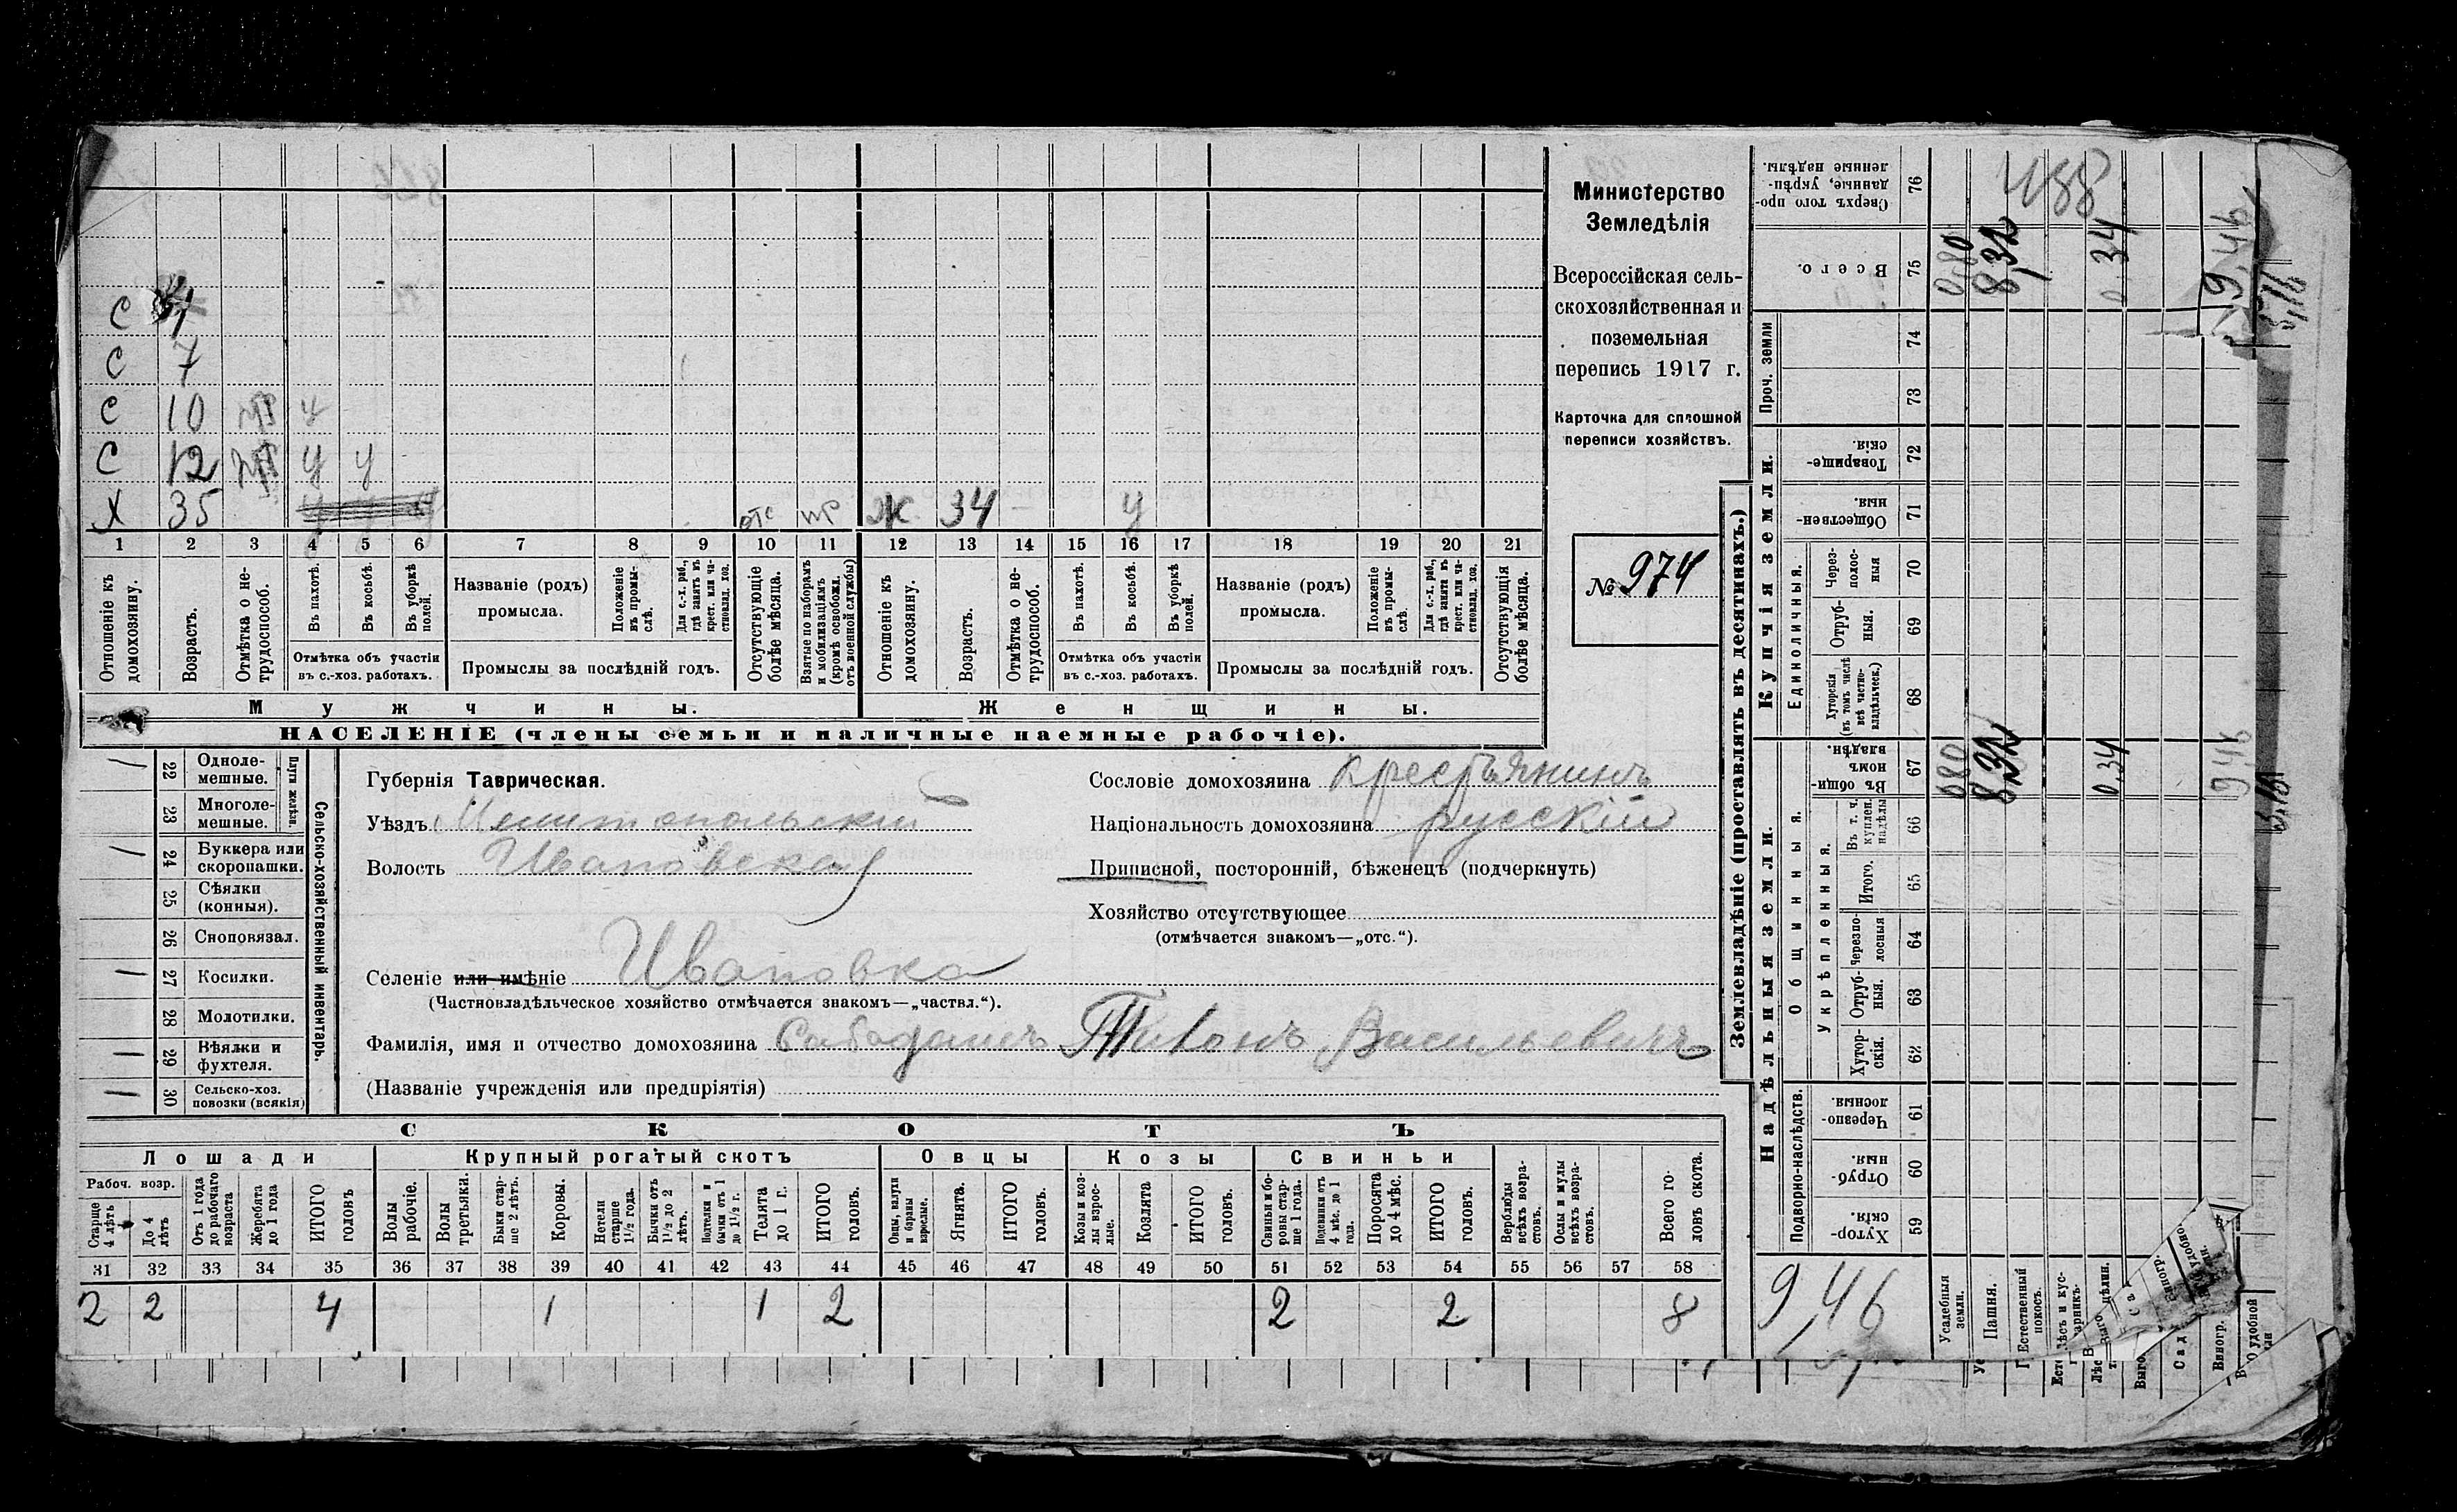 С 4
С 7
С 10 пр у
С 12 пр у у
Х 35 отс пр Ж 34 — у
1 2 3 4 5 6 7 8 9 10 11 12 13 14 15 16 17 18 19 20 21
Отношеніе къ домохозяину.
Возрастъ.
Отмѣтка о не-трудоспособ.
Въ пахотѣ.
Въ косьбѣ.
Въ уборкѣ полей.
Отмѣтка объ участіи
въ с.-хоз. работахъ.
Названіе (родъ)
промысла.
Положеніе въ промы-слѣ.
Для с.-х. раб., гдѣ занятъ въ крест. или ча-стновлад. хоз.
Промыслы за послѣдній годъ.
Отсутствующіе болѣе мѣсяца.
Взятые по наборамъ и мобилизаціямъ (кромѣ освобожд. отъ военной службы)
Отношеніе къ домохозяину.
Возрастъ.
Отмѣтка о не-трудоспособ.
Въ пахотѣ.
Въ косьбѣ.
Въ уборкѣ полей.
Отмѣтка объ участіи
въ с.-хоз. работахъ.
Названіе (родъ)
промысла.
Положеніе въ промы-слѣ.
Для с.-х. раб., гдѣ занята въ крест. или ча-стновлад. хоз.
Промыслы за послѣдній годъ.
Отсутствующія болѣе мѣсяца.
Мужчины. Женщины.
НАСЕЛЕНІЕ (члены семьи и наличные наемные рабочіе).
Министерство
Земледѣлія
Всероссійская сель-
скохозяйственная и
поземельная
перепись 1917 г.
Карточка для сплошной
переписи хозяйствъ.
№ 974
22 Одноле-мешные.
23 Многоле-мешные.
Плуги желѣзн.
24 Буккера или скоропашки.
25 Сѣялки (конныя).
26 Сноповязал.
27 Косилки.
28 Молотилки.
29 Вѣялки и фухтеля.
30 Сельско-хоз. повозки (всякія)
Сельско-хозяйственный инвентарь.
Губернія Таврическая.
Уѣздъ Мелитопольскій
Волость Ивановская
Селеніе или имѣніе Ивановка
(Частновладѣльческое хозяйство отмѣчается знакомъ—„частвл.“).
Фамилія, имя и отчество домохозяина Сабадашъ Тихонъ Васильевичъ
(Названіе учрежденія или предпріятія)
Сословіе домохозяина Крестьянинъ
Національность домохозяина русскій
Приписной, посторонній, бѣженецъ (подчеркнуть)
Хозяйство отсутствующее
(отмѣчается знакомъ—„отс.“).
СКОТЪ
Лошади Крупный рогатый скотъ Овцы Козы Свиньи
Рабоч. возр.
Старше 4 лѣтъ
До 4 лѣтъ
Отъ 1 года до рабочаго возраста
Жеребята до 1 года
ИТОГО головъ
Волы рабочіе.
Волы третьяки.
Быки стар-ше 2 лѣтъ.
Коровы.
Нетели старше 1½ года.
Бычки отъ 1½ до 2 лѣтъ.
Подтелки и бычки отъ 1 до 1½ г.
Телята до 1 г.
ИТОГО головъ.
Овцы, валухи и бараны взрослые.
Ягнята.
ИТОГО головъ.
Козы и коз-лы взрос-лые.
Козлята
ИТОГО головъ.
Свиньи и бо-ровы стар-ше 1 года.
Подсвинки отъ 4 мѣс. до 1 года.
Поросята до 4 мѣс.
ИТОГО головъ.
Верблюды всѣхъ возра-стовъ.
Ослы и мулы всѣхъ возра-стовъ.
Всего го-ловъ скота.
31 32 33 34 35 36 37 38 39 40 41 42 43 44 45 46 47 48 49 50 51 52 53 54 55 56 57 58
2 2 4 1 1 2 2 2 8
Землевладѣніе (проставлять въ десятинахъ.)
Надѣльныя земли. Купчія земли. Проч. земли
Подворно-наслѣдств.
Общинныя.
Укрѣпленныя.
Единоличныя.
Хутор-скія. 59
Отруб-ныя. 60
Черезпо-лосныя 61
Хутор-скія. 62
Отруб-ныя. 63
Черезпо-лосныя 64
Итого. 65
Въ т. ч. куплен. надѣлы 66
Въ общин-номъ владѣн. 67
Хуторскія (въ томъ числѣ всѣ частно-владѣльческ.) 68
Отруб-ныя. 69
Через-полос-ныя 70
Обществен-ныя. 71
Товарище-скія. 72
73
74
Всего. 75
Сверхъ того про-данные, укрѣп-ленные надѣлы. 76
488
0,80 8,32 0 34 9,46
080 8,32 0,34 9,46
9,46
Усадебныя земли.
Пашня.
Естественный покосъ.
Лѣсъ и кус-тарникъ.